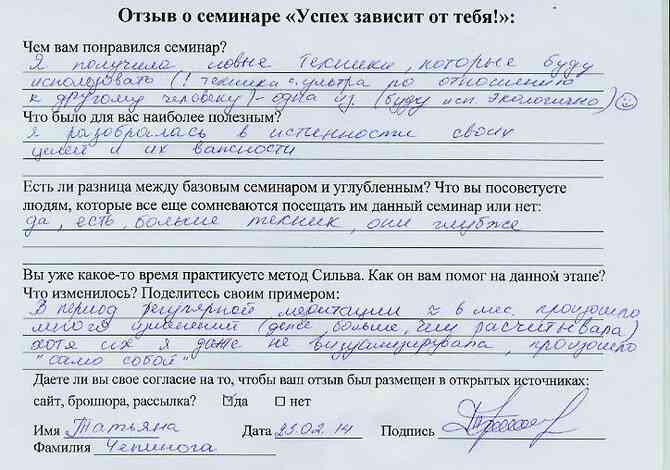 Отзыв о семинаре «Успех зависит от тебя!»:
Чем вам понравился семинар?
Я получила новые техники, которые буду
использовать (! техника с ультра по отношению
к другому человеку) - одна из. (буду исп. Экологично)
Что было для вас наиболее полезным?
Я разобралась в истенности своих
целей и их важности
Есть ли разница между базовым семинаром и углубленным? Что вы посоветуете
людям, которые все еще сомневаются посещать им данный семинар или нет:
да, есть, больше техник, они глубже
Вы уже какое-то время практикуете метод Сильва. Как он вам помог на данном этапе?
Что изменилось? Поделитесь своим примером:
В период регулярной медитации ≈ 6 мес. произошло
много изменений (даже больше, чем расчитывала)
хотя их я даже не визуализировала, произошло
"само собой"
Даете ли вы свое согласие на то, чтобы ваш отзыв был размещен в открытых источниках:
сайт, брошюра, рассылка? да нет
Имя Татьяна Дата 23.02.14 Подпись
Фамилия Чепинога